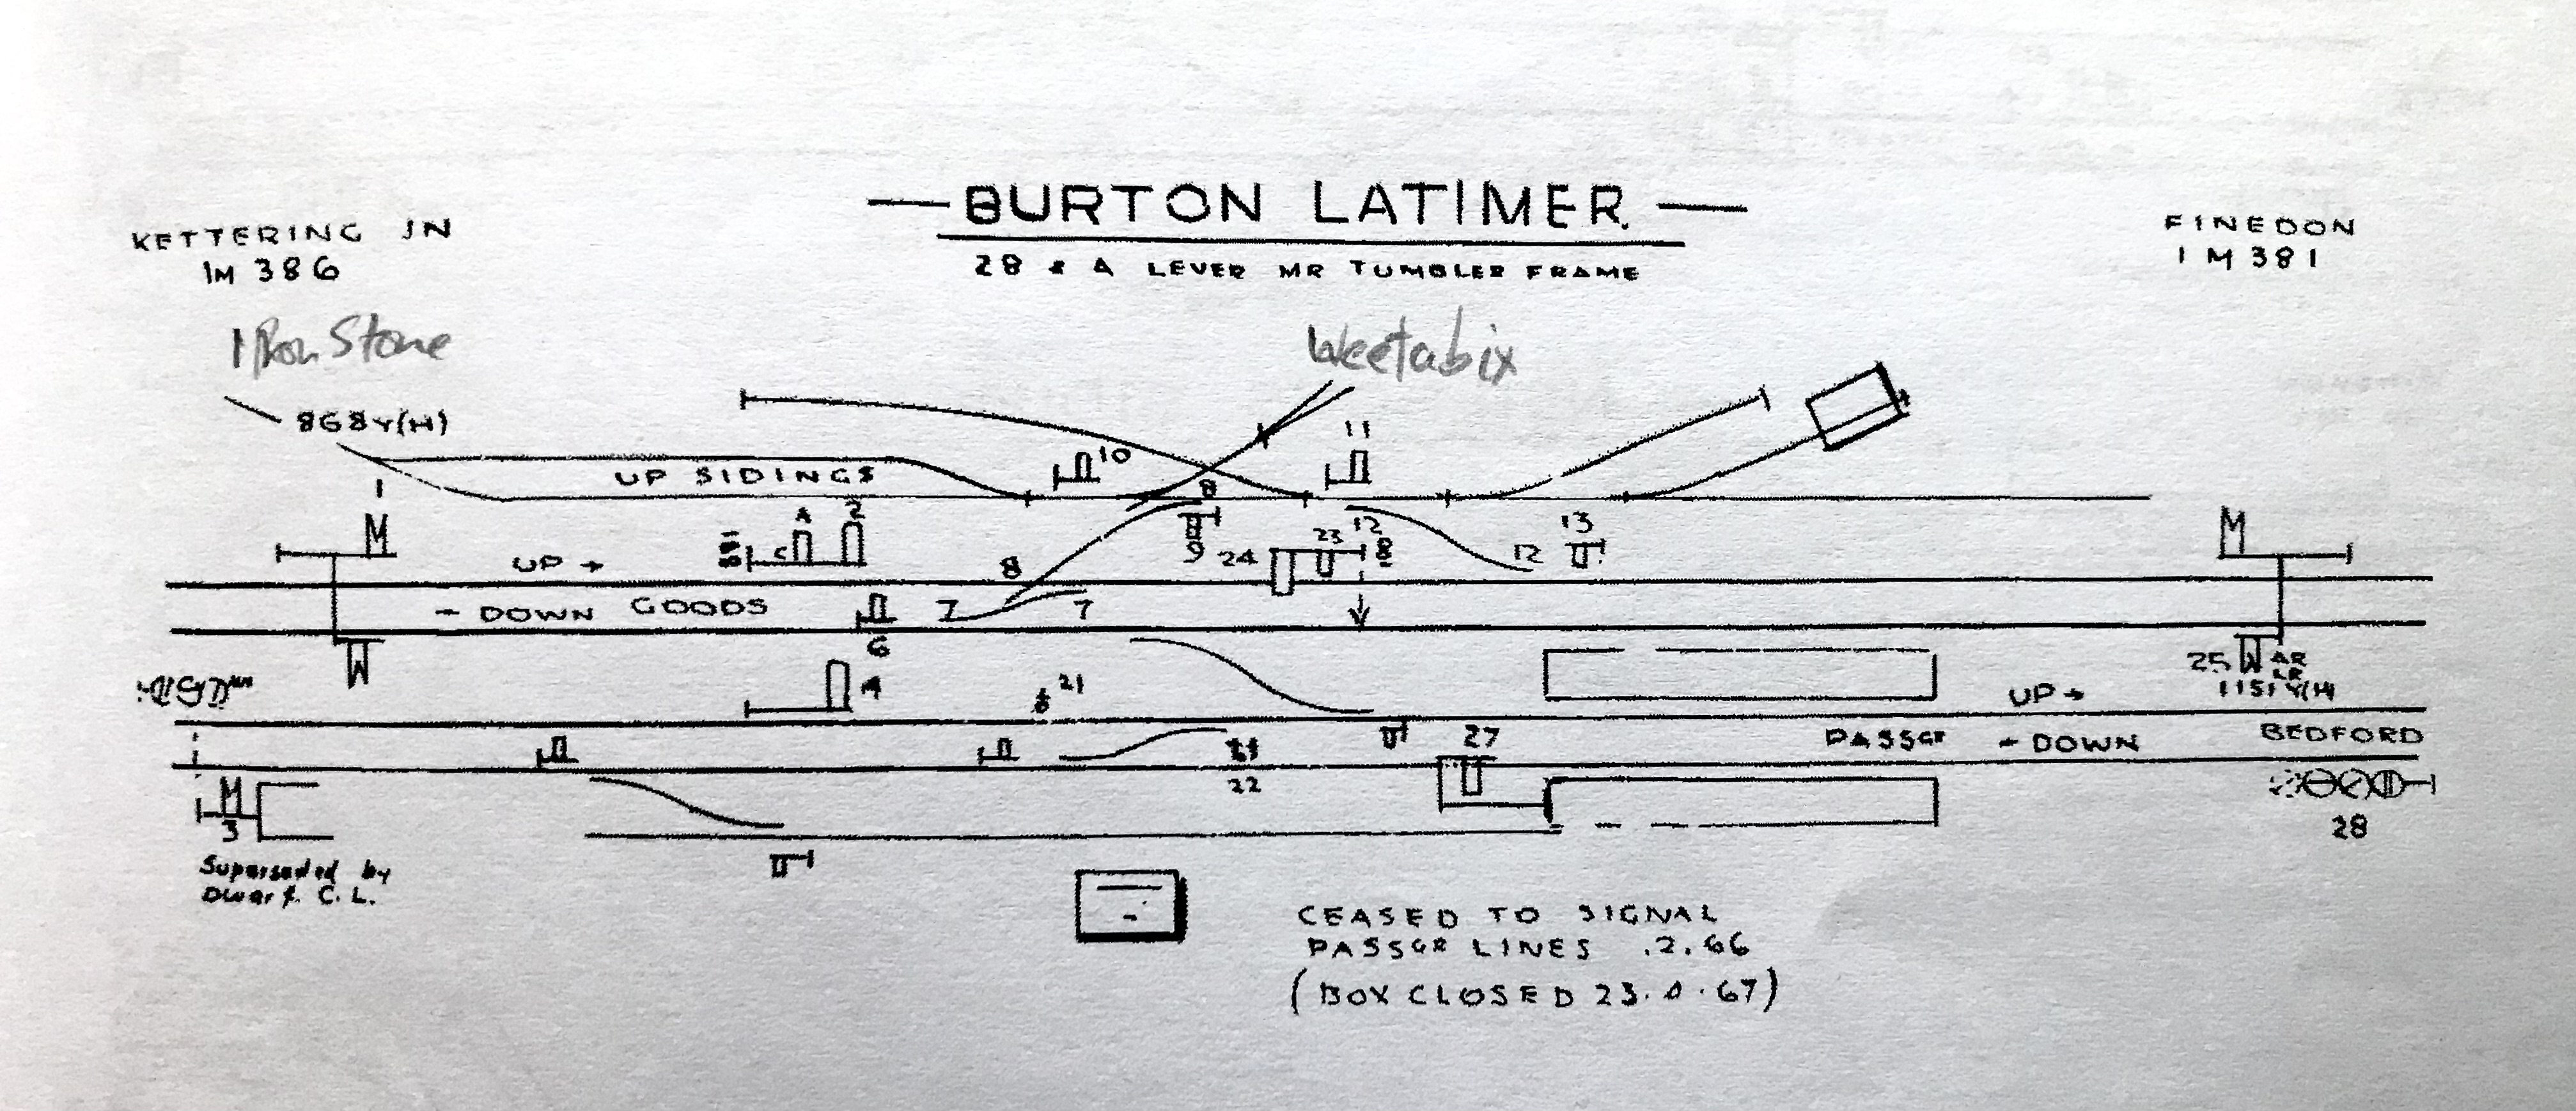 BURTON LATIMER
28 & A LEVER MR TUMBLER FRAME
KETTERING JN
1M 386
FINEDON
1M 381
Iron Stone
Weetabix
868Y(H)
UP SIDINGS
10
11
8
1
M
A
2
5
9
24
23
12
12
13
M
UP →
8
← DOWN GOODS
7
7
6
W
4
21
25 W AR
LR
1151Y(H)
UP →
27
PASSGR ← DOWN
BEDFORD
22
M
3
28
Superseded by
Dwarf. C. L.
CEASED TO SIGNAL
PASSGR LINES .2.66
(BOX CLOSED 23. .67)